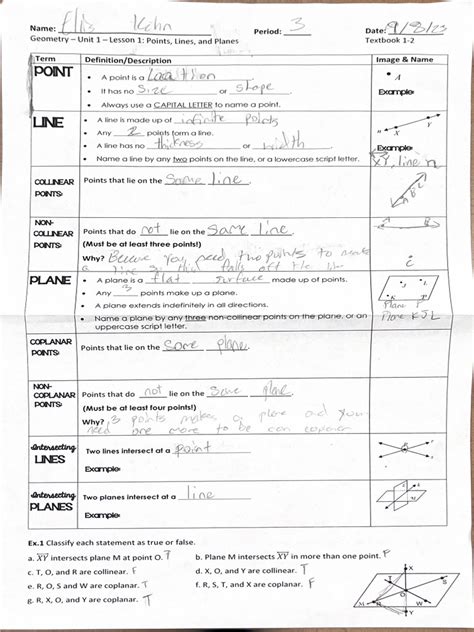 Name: Ellis Kehn Period: 3 Date: 9/8/23
Geometry – Unit 1 – Lesson 1: Points, Lines, and Planes Textbook 1-2
Term Definition/Description Image & Name
POINT
• A point is a location
• It has no size or shape
• Always use a CAPITAL LETTER to name a point.
• A
Example:
LINE
• A line is made up of infinite points
• Any 2 points form a line.
• A line has no thickness or width
• Name a line by any two points on the line, or a lowercase script letter.
X Y
Example:
XY, line n
COLLINEAR POINTS:
Points that lie on the same line.
NON-COLLINEAR POINTS:
Points that do not lie on the same line
(Must be at least three points!)
Why? you need two points to make
a line falls off the
PLANE
• A plane is a flat surface made up of points.
• Any 3 points make up a plane.
• A plane extends indefinitely in all directions.
• Name a plane by any three non-collinear points on the plane, or an
uppercase script letter.
Plane P
Plane KJL
COPLANAR POINTS:
Points that lie on the same plane.
NON-COPLANAR POINTS:
Points that do not lie on the same plane.
(Must be at least four points!)
Why? 3 points makes a plane and you
need one more to be
Intersecting LINES
Two lines intersect at a point
Example:
Intersecting PLANES
Two planes intersect at a line
Example:
Ex.1 Classify each statement as true or false.
a. XY intersects plane M at point O. T b. Plane M intersects XY in more than one point. F
c. T, O, and R are collinear. T d. X, O, and Y are collinear. T
e. R, O, S and W are coplanar. T f. R, S, T, and X are coplanar. F
g. R, X, O, and Y are coplanar. T
X
T
S
O
R
W
M
Y